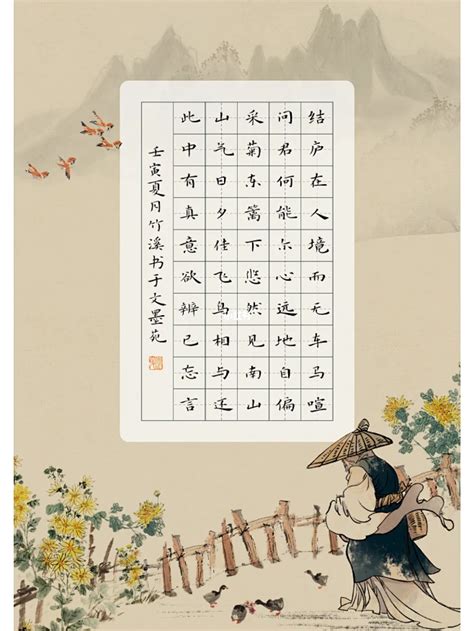 结庐在人境而无车马喧
问君何能尔心远地自偏
采菊东篱下悠然见南山
山气日夕佳飞鸟相与还
此中有真意欲辨已忘言
壬寅夏月竹溪书于文墨苑